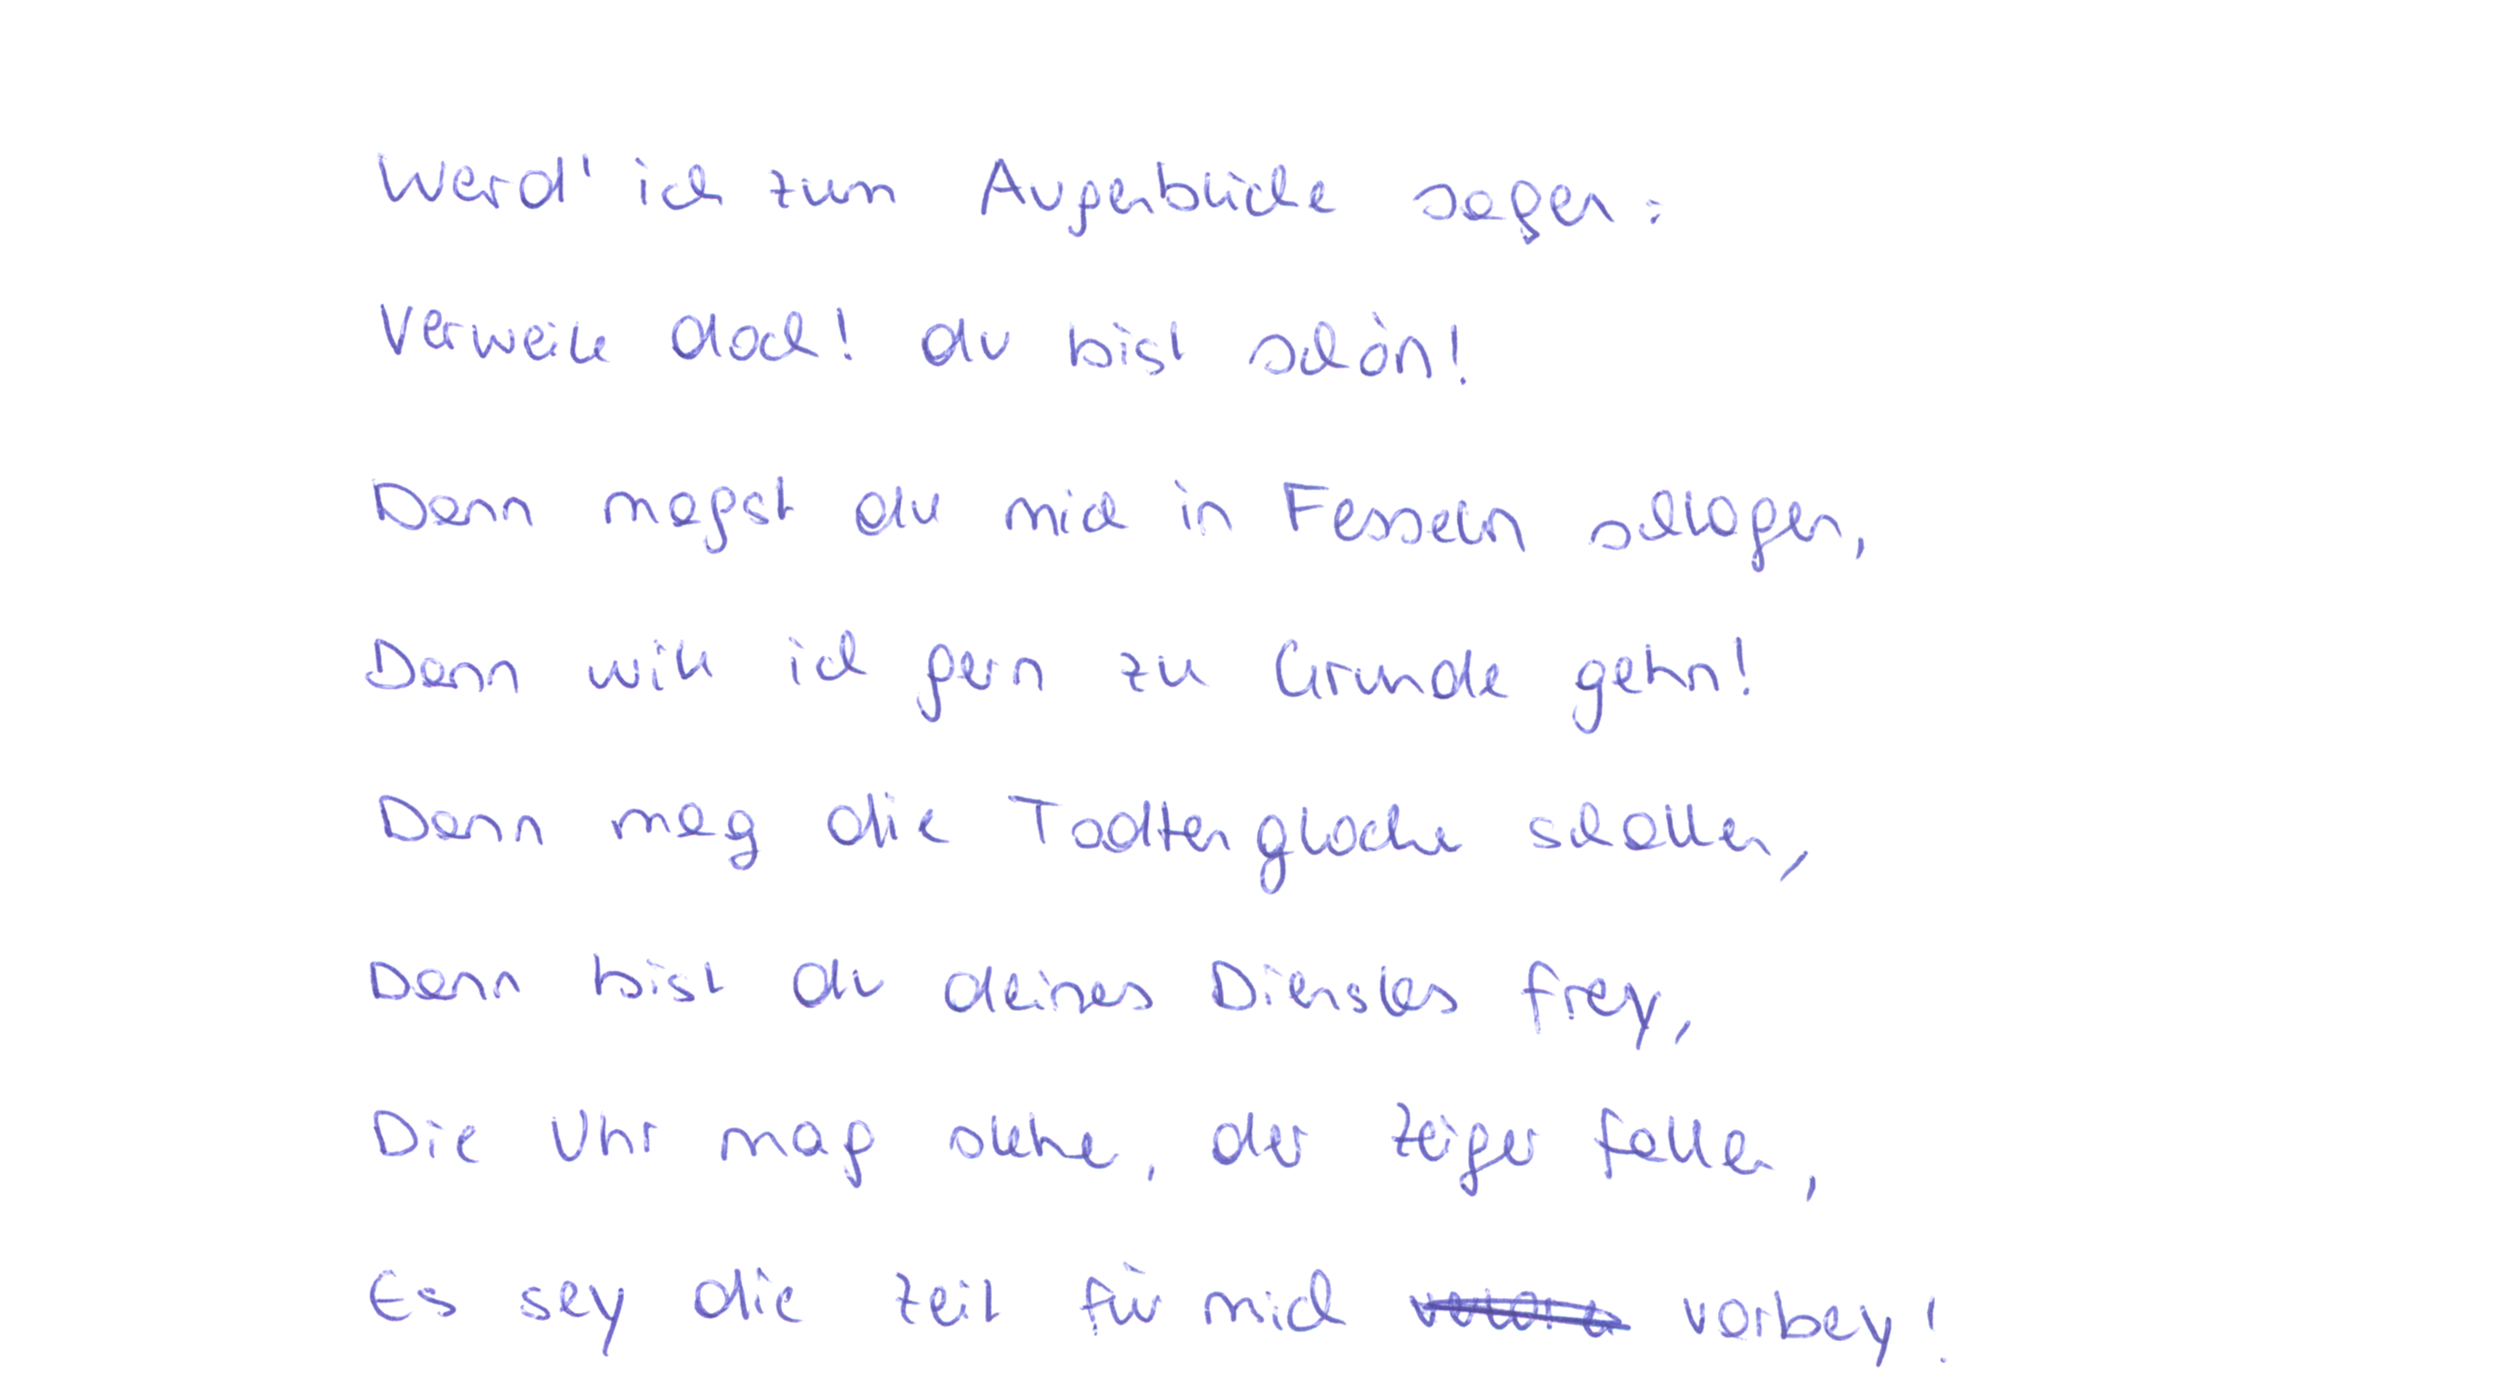 Werd' ich zum Augenblicke sagen:
Verweile doch! du bist schön!
Dann magst du mich in Fesseln schlagen,
Dann will ich gern zu Grunde gehn!
Dann mag die Todtenglocke schallen,
Dann bist du deines Dienstes frey,
Die Uhr mag stehn, der Zeiger fallen,
Es sey die Zeit für mich vorbey!